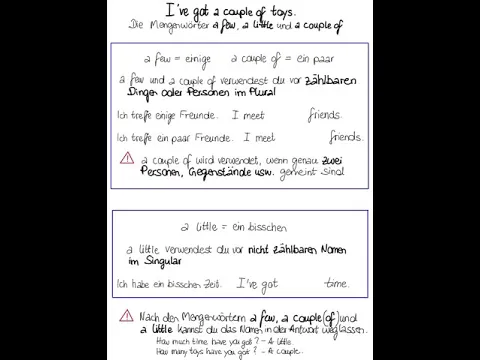 I've got a couple of toys.
Die Mengenwörter a few, a little und a couple of
a few = einige a couple of = ein paar
a few und a couple of verwendest du vor zählbaren
Dingen oder Personen im Plural
Ich treffe einige Freunde. I meet friends.
Ich treffe ein paar Freunde. I meet friends.
a couple of wird verwendet, wenn genau zwei
Personen, Gegenstände usw. gemeint sind
a little = ein bisschen
a little verwendest du vor nicht zählbaren Nomen
im Singular
Ich habe ein bisschen Zeit. I've got time.
Nach den Mengenwörtern a few, a couple (of) und
a little kannst du das Nomen in der Antwort weglassen.
How much time have you got? - A little.
How many toys have you got? - A couple.